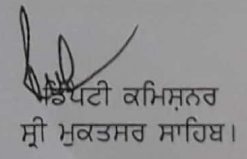 ਡਿਪਟੀ ਕਮਿਸ਼ਨਰ
ਸ੍ਰੀ ਮੁਕਤਸਰ ਸਾਹਿਬ।